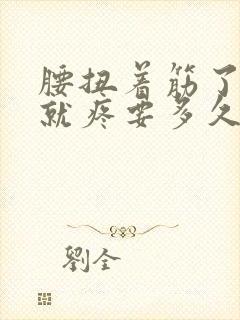 腰扭着筋了
就疼要多久
劉全